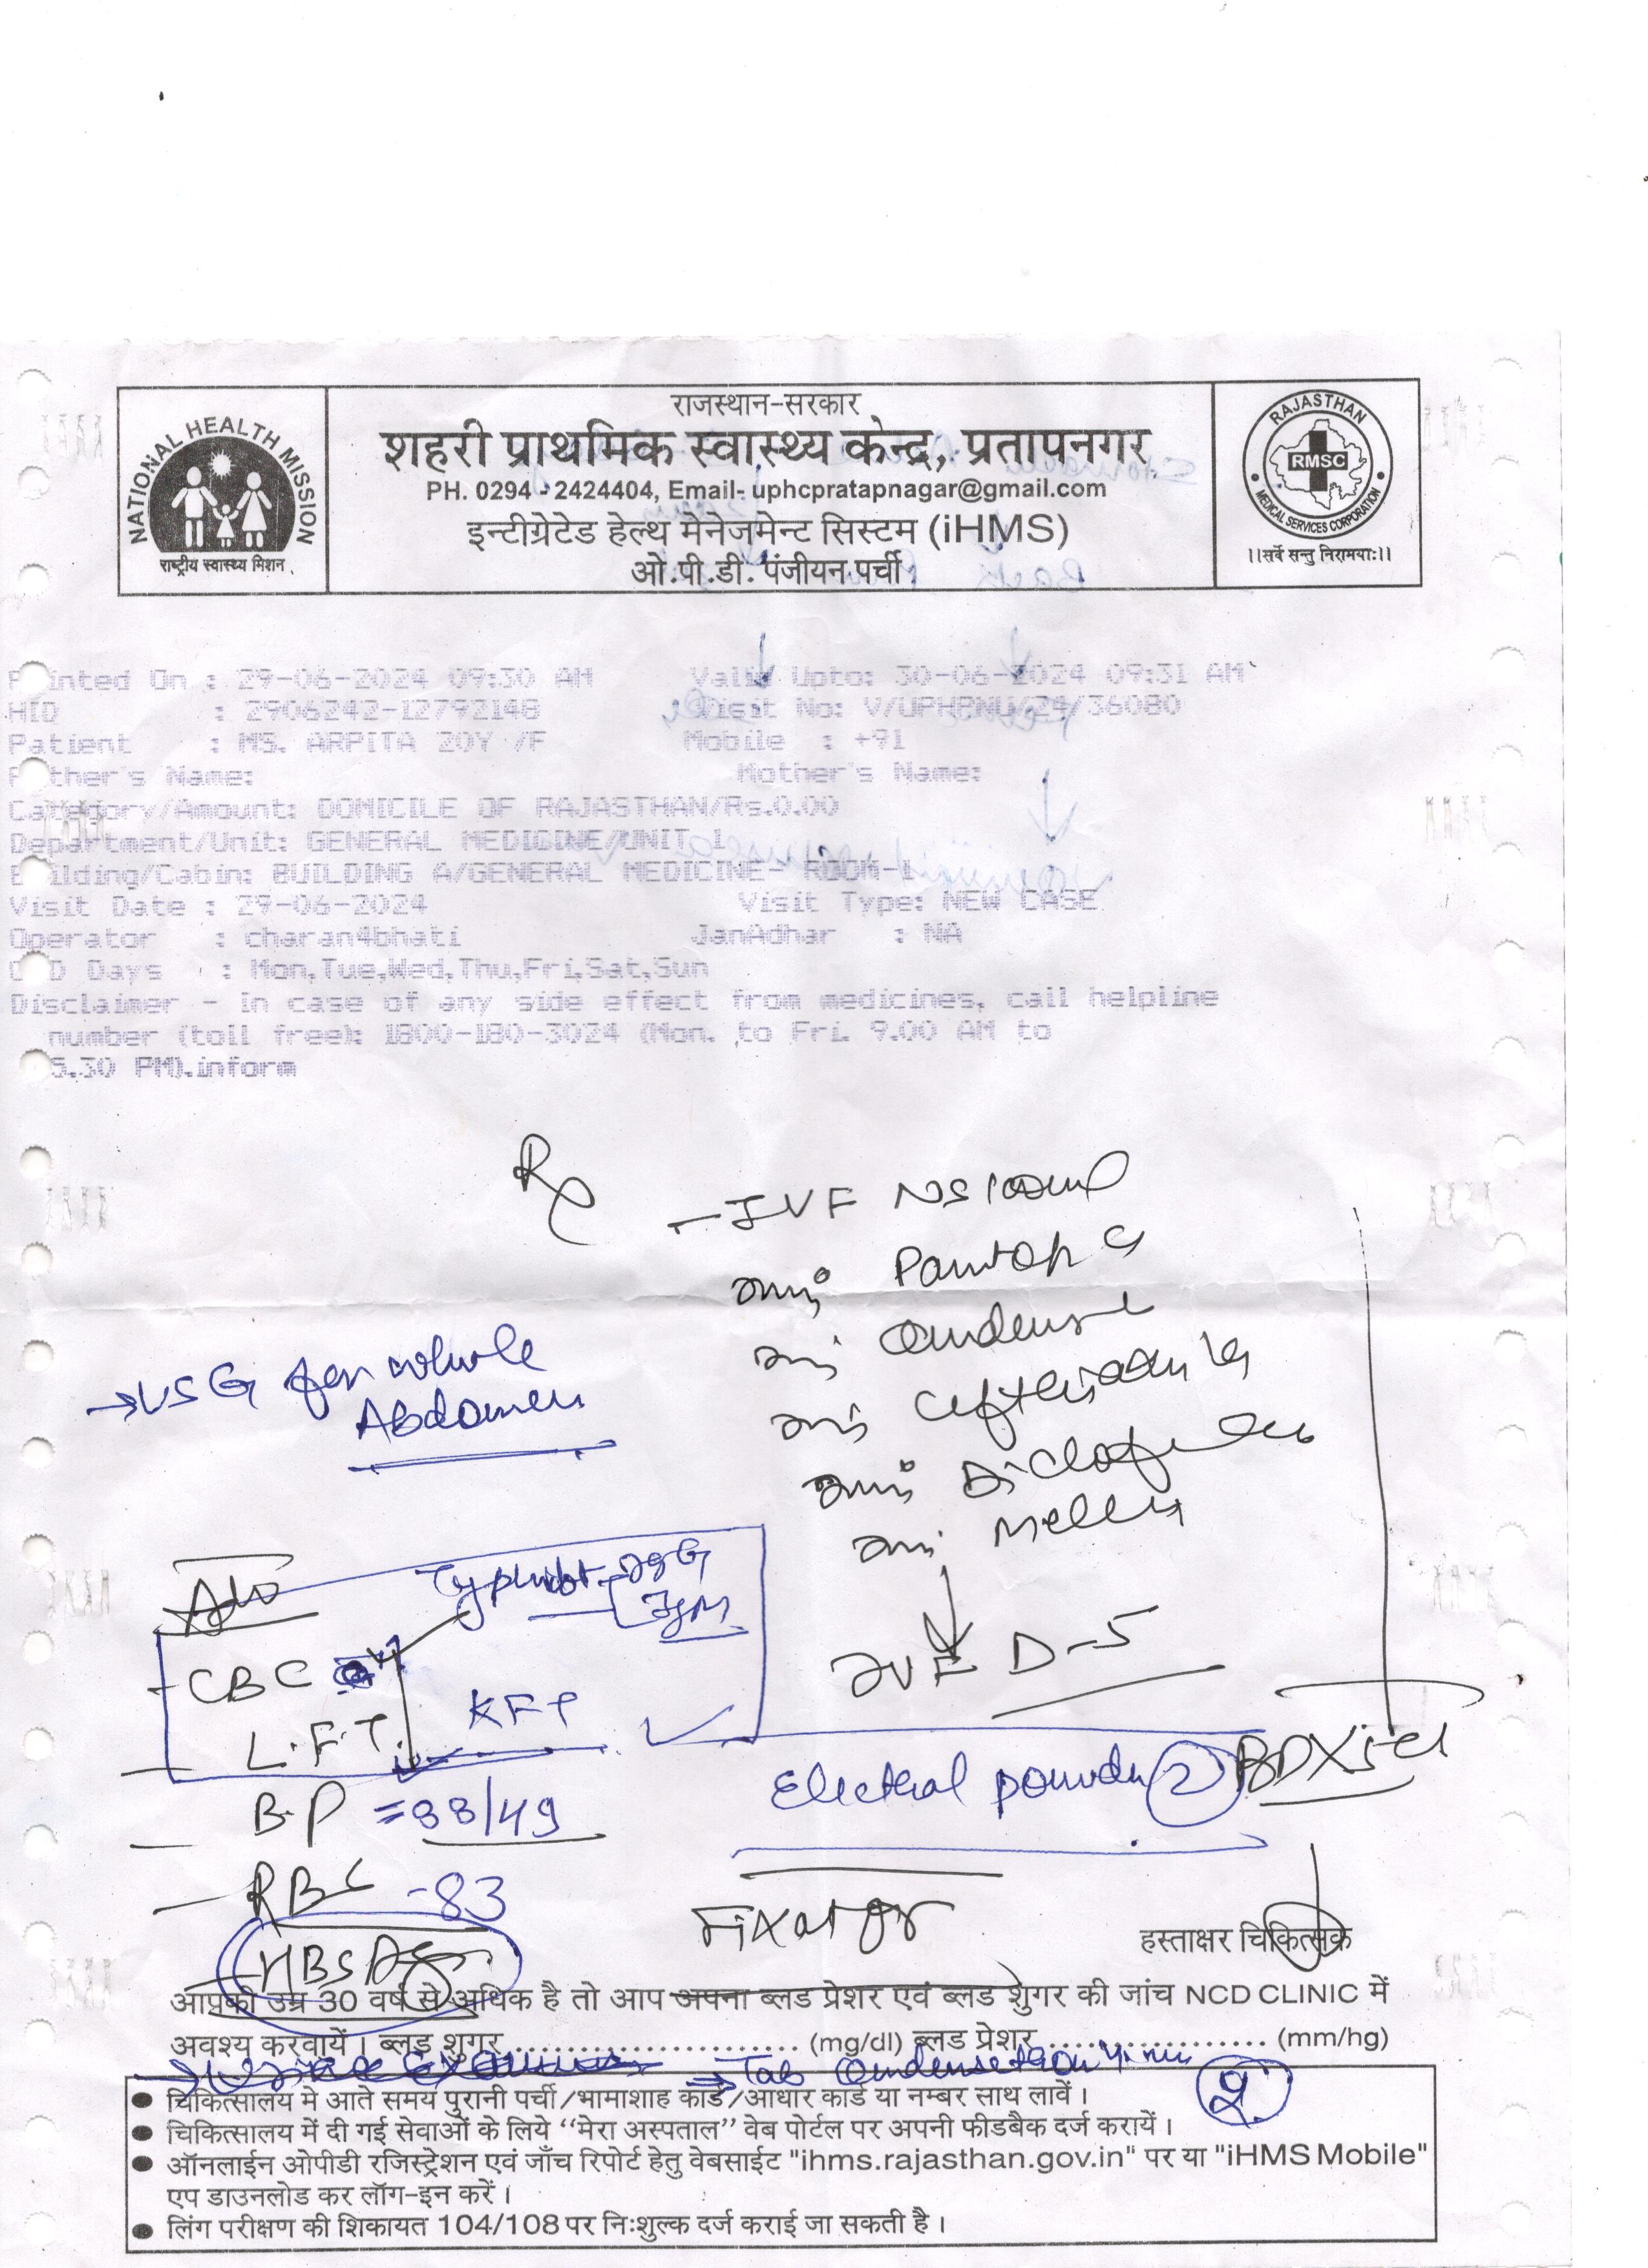 राजस्थान-सरकार
शहरी प्राथमिक स्वास्थ्य केन्द्र, प्रतापनगर
PH. 0294 - 2424404, Email- uphcpratapnagar@gmail.com
इन्टीग्रेटेड हेल्थ मेनेजमेन्ट सिस्टम (iHMS)
ओ.पी.डी. पंजीयन पर्ची
NATIONAL HEALTH MISSION
राष्ट्रीय स्वास्थ्य मिशन
RAJASTHAN
RMSC
MEDICAL SERVICES CORPORATION
।।सर्वे सन्तु निरामयाः।।
Printed On : 29-06-2024 09:30 AM Valid Upto: 30-06-2024 09:31 AM
HID : 2906242-12792148 Visit No: V/UPHPNU/24/36080
Patient : MS. ARPITA 20Y /F Mobile : +91
Father's Name: Mother's Name:
Category/Amount: DOMICILE OF RAJASTHAN/Rs.0.00
Department/Unit: GENERAL MEDICINE/UNIT 1
Building/Cabin: BUILDING A/GENERAL MEDICINE- ROOM-1
Visit Date : 29-06-2024 Visit Type: NEW CASE
Operator : charan4bhati JanAdhar : NA
OPD Days : Mon,Tue,Wed,Thu,Fri,Sat,Sun
Disclaimer - In case of any side effect from medicines, call helpline
number (toll free): 1800-180-3024 (Mon. to Fri. 9.00 AM to
5.30 PM).inform
Rx
- IVF NS
Inj Pantop
Inj
Inj
Inj Diclofenac
Inj
IVF D-5
→ USG for whole
Abdomen
Adv
Typhidot IgG
IgM
- CBC
- L.F.T. KFT
- B.P = 88/49
- RBS - 83
- HBSAg
Electral powder (2) BDX5d
हस्ताक्षर चिकित्सक
आपकी उम्र 30 वर्ष से अधिक है तो आप अपना ब्लड प्रेशर एवं ब्लड शुगर की जांच NCD CLINIC में
अवश्य करवायें। ब्लड शुगर........................ (mg/dl) ब्लड प्रेशर.................. (mm/hg)
→ Tab
● चिकित्सालय मे आते समय पुरानी पर्ची/भामाशाह कार्ड/आधार कार्ड या नम्बर साथ लावें।
● चिकित्सालय में दी गई सेवाओं के लिये "मेरा अस्पताल" वेब पोर्टल पर अपनी फीडबैक दर्ज करायें।
● ऑनलाईन ओपीडी रजिस्ट्रेशन एवं जाँच रिपोर्ट हेतु वेबसाईट "ihms.rajasthan.gov.in" पर या "iHMS Mobile"
एप डाउनलोड कर लॉग-इन करें।
● लिंग परीक्षण की शिकायत 104/108 पर निःशुल्क दर्ज कराई जा सकती है।